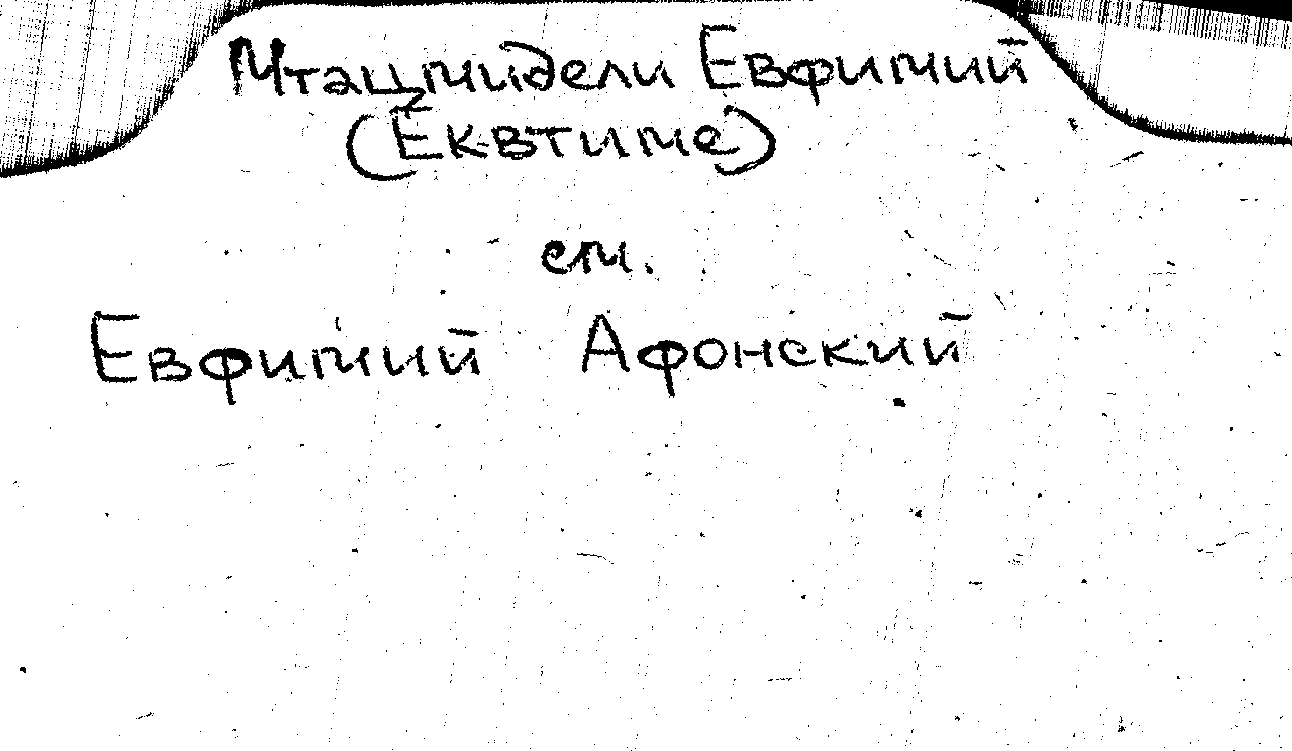 Мтацмидели Евфимий
(Еквтиме)
см.
Евфимий Афонский